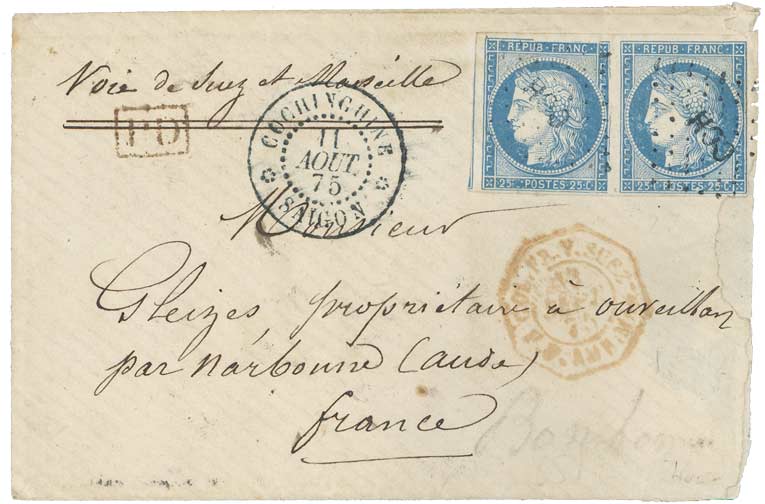 REPUB · FRANC ·
REPUB · FRANC ·
25c. POSTES 25c.
25c. POSTES 25c.
Voie de Suez et Marseille
PD
COCHINCHINE
11
AOUT
75
SAIGON
Monsieur
Gleizes, propriétaire à ouveillan
par Narbonne (Aude)
france
V. SUEZ